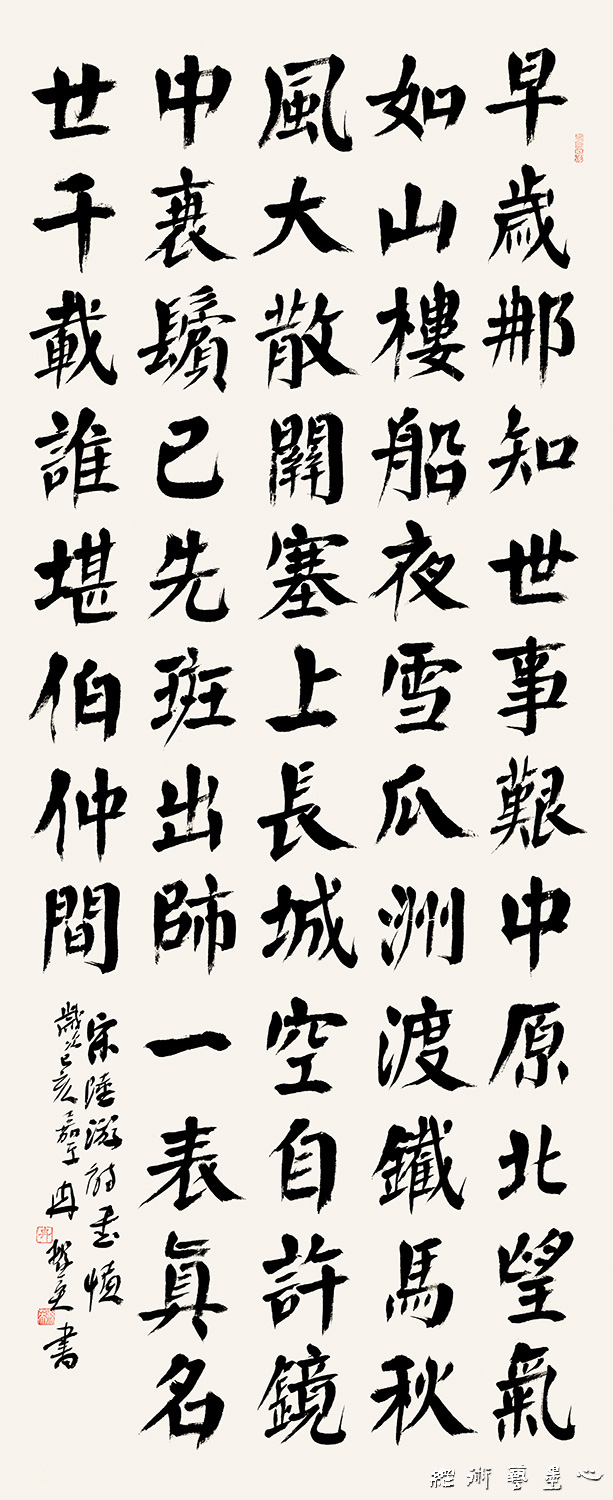 早歲那知世事艱中原北望氣
如山樓船夜雪瓜洲渡鐵馬秋
風大散關塞上長城空自許鏡
中衰鬢已先斑出師一表真名
世千載誰堪伯仲間
宋陸游詩書憤
歲次己亥嘉平冉繁英書
心墨藝術網